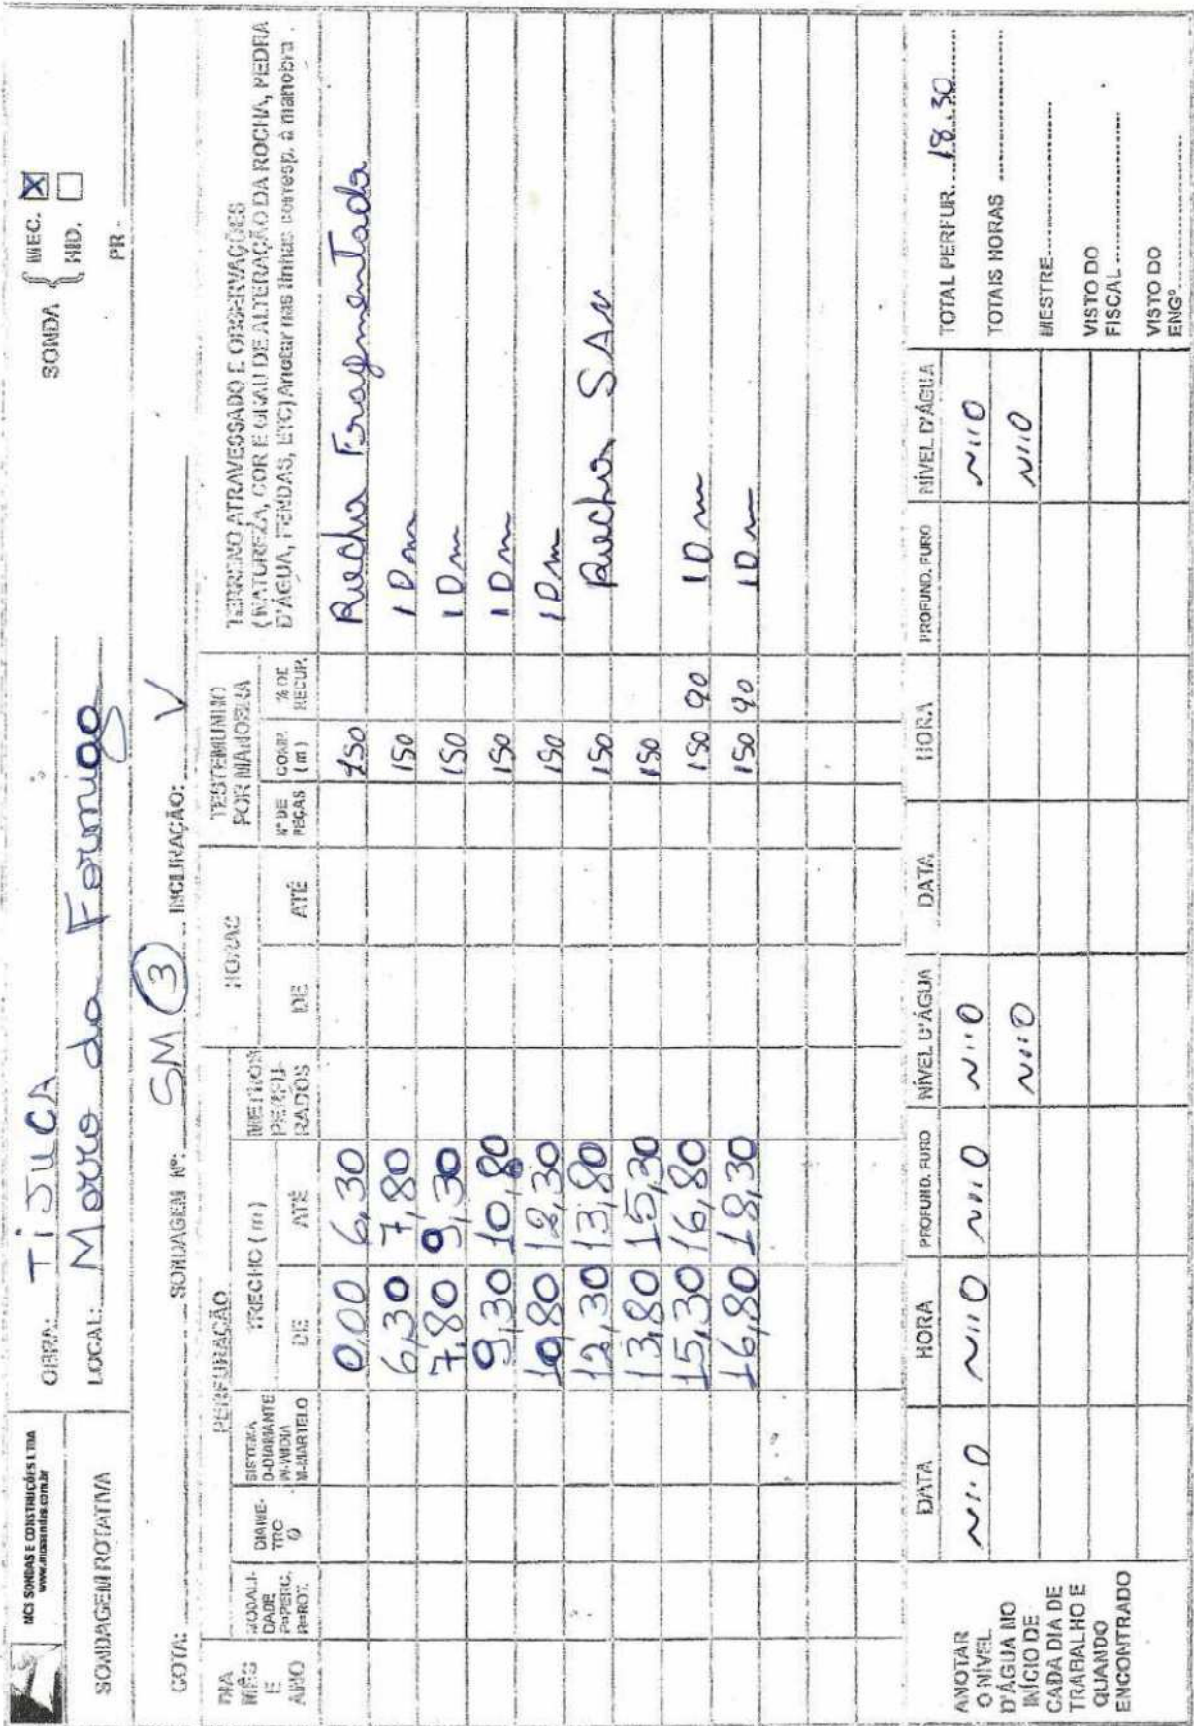 MCS SONDAS E CONSTRUÇÕES LTDA
www.mcssondas.com.br
SONDAGEM ROTATIVA
OBRA: TiJUCA
LOCAL: Morro da Formiga
SONDA { MEC. [X]
HID. [ ]
PR -
COTA: SONDAGEM Nº: SM (3) INCLINAÇÃO: V
DIA MÊS E ANO
PERFURAÇÃO
MODALIDADE P=PERC. R=ROT.
DIAMETRO Ø
SISTEMA D-DIAMANTE W-WIDIA M-MARTELO
TRECHO (m)
DE ATÉ
METROS PERFURADOS
HORAS
DE ATÉ
TESTEMUNHO POR MANOBRA
Nº DE PEÇAS COMP. (m) % DE RECUP.
TERRENO ATRAVESSADO E OBSERVAÇÕES
(NATUREZA, COR E GRAU DE ALTERAÇÃO DA ROCHA, PEDRA
D'ÁGUA, FENDAS, ETC) Anotar nas linhas corresp. à manobra.
0,00 6,30 150 Rocha Fragmentada
6,30 7,80 150 IDm
7,80 9,30 150 IDm
9,30 10,80 150 IDm
10,80 12,30 150 IDm
12,30 13,80 150 Rocha SAN
13,80 15,30 150
15,30 16,80 150 90 IDm
16,80 18,30 150 90 IDm
ANOTAR
O NÍVEL
D'ÁGUA NO
INÍCIO DE
CADA DIA DE
TRABALHO E
QUANDO
ENCONTRADO
DATA HORA PROFUND. FURO NÍVEL D'ÁGUA DATA HORA PROFUND. FURO NÍVEL D'ÁGUA
TOTAL PERFUR. 18.30
TOTAIS HORAS
MESTRE
VISTO DO
FISCAL
VISTO DO
ENGº